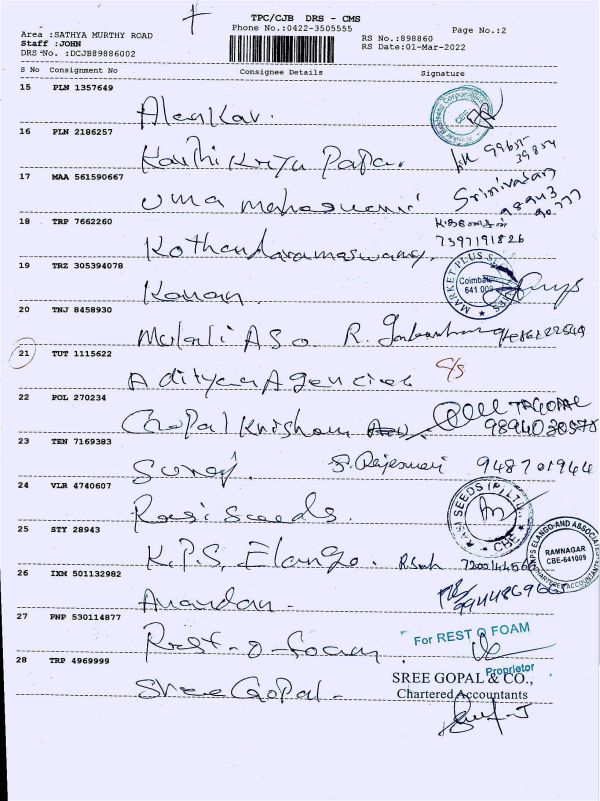 TPC/CJB DRS - CMS
Phone No.:0422-3505555
Page No.:2
Area :SATHYA MURTHY ROAD
Staff :JOHN
RS No.:898860
DRS No. :DCJB89886002
RS Date:01-Mar-2022
S No Consignment No Consignee Details Signature
15 PLN 1357649
Alankar.
16 PLN 2186257
Karthi Kriya Papa.
17 MAA 561590667
Uma Maheswari
Srinivasan
18 TRP 7662260
Kothandaramaswamy.
7397191826
19 TRZ 305394078
Kannan.
MARKET PLUS
Coimbatore
641 009
20 TNJ 8458930
21 TUT 1115622
Aditya Agencies
C/S
22 POL 270234
Gopal Krishnan
9894030578
23 TEN 7169383
Suraj.
948701944
24 VLR 4740607
Rasi Seeds.
RASI SEEDS (P) LTD.
CBE
25 STY 28943
K.P.S. Elango.
ELANGO AND ASSOCIATES
RAMNAGAR
CBE-641009
CHARTERED ACCOUNTANTS
26 IXM 501132982
Anandan.
27 PNP 530114877
Rest-o-Foam
For REST O FOAM
Proprietor
28 TRP 4969999
Sree Gopal.
SREE GOPAL & CO.,
Chartered Accountants